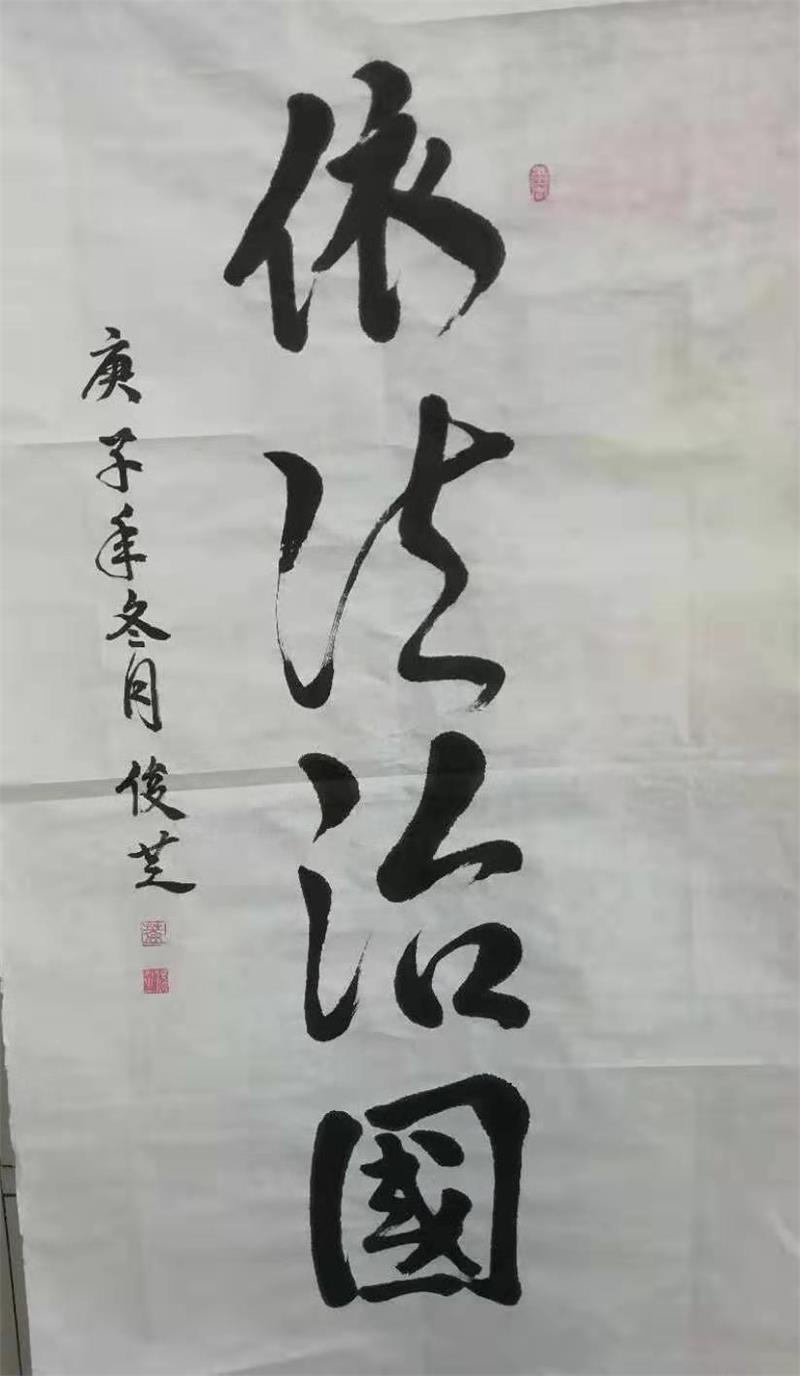 依法治國
庚子年冬月俊芝